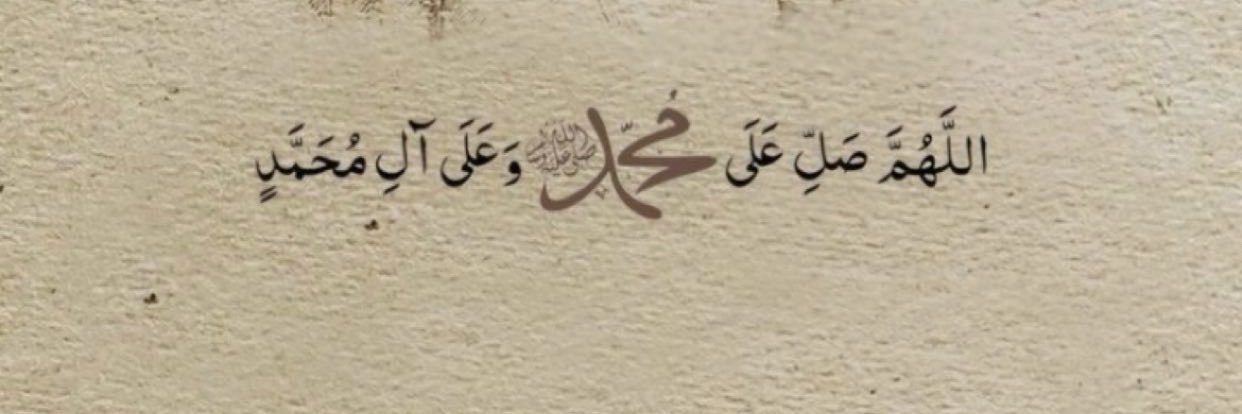 اللَّهُمَّ صَلِّ عَلَى مُحمّد ﷺ وَعَلَى آلِ مُحَمَّدٍ